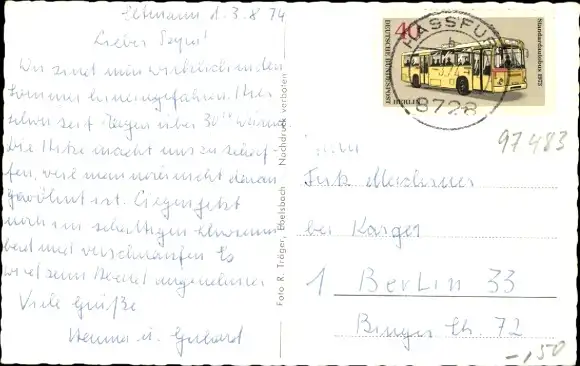 Eltmann d. 3.8.74
Lieber
Wir sind nun wirklich in den
Sommer hineingefahren. Hier
schon seit Tagen über 30°
Die Hitze macht uns zu schaf-
fen, weil man noch nicht daran
gewöhnt ist. Liegen jetzt
noch im schattigen
und verschnaufen. Es
wird zum Abend angenehmer
Viele Grüße
Henma u. Gerhard
Foto R. Träger, Ebelsbach Nachdruck verboten
40
DEUTSCHE BUNDESPOST
BERLIN
Standardautobus 1973
HASSFURT
8728
97483
bei Karger
1 Berlin 33
Binger Str. 72
-,50